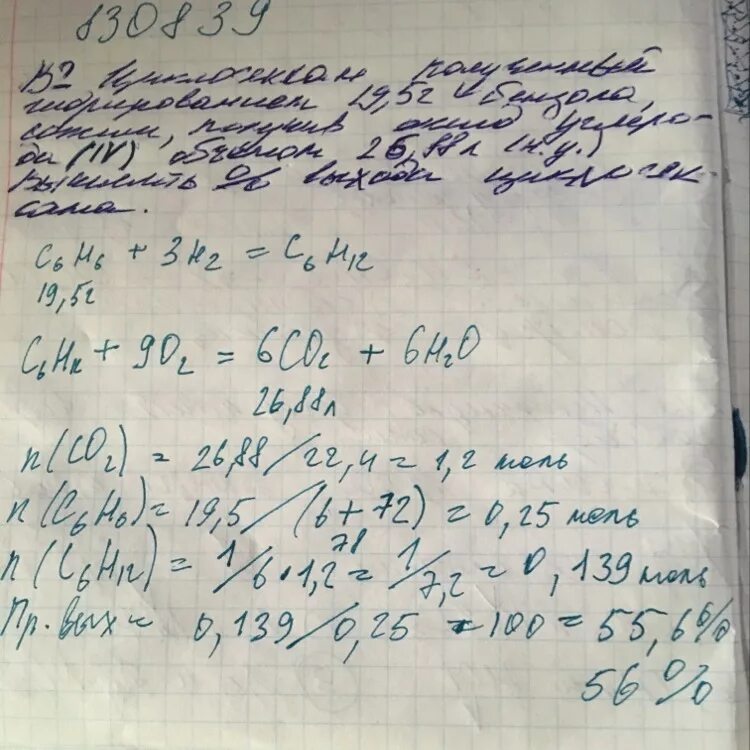 830839
Циклогексан полученный
гидрированием 19,5г бензола,
сожгли, получив оксид углеро-
да (IV) объемом 26,88л (н.у.)
Вычислить % выхода циклогек-
сана.
C6H6 + 3H2 = C6H12
19,5г
C6H12 + 9O2 = 6CO2 + 6H2O
26,88л
n(CO2) = 26,88/22,4 = 1,2 моль
n(C6H6) = 19,5/(6+72) = 0,25 моль
78
n(C6H12) = 1/6·1,2 = 1/7,2 = 0,139 моль
Пр. вых = 0,139/0,25 · 100 = 55,6%
56%